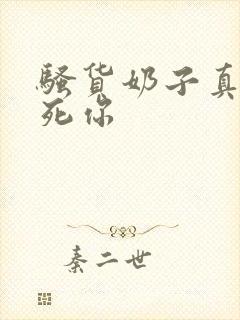 骚货奶子真
死你
秦二世